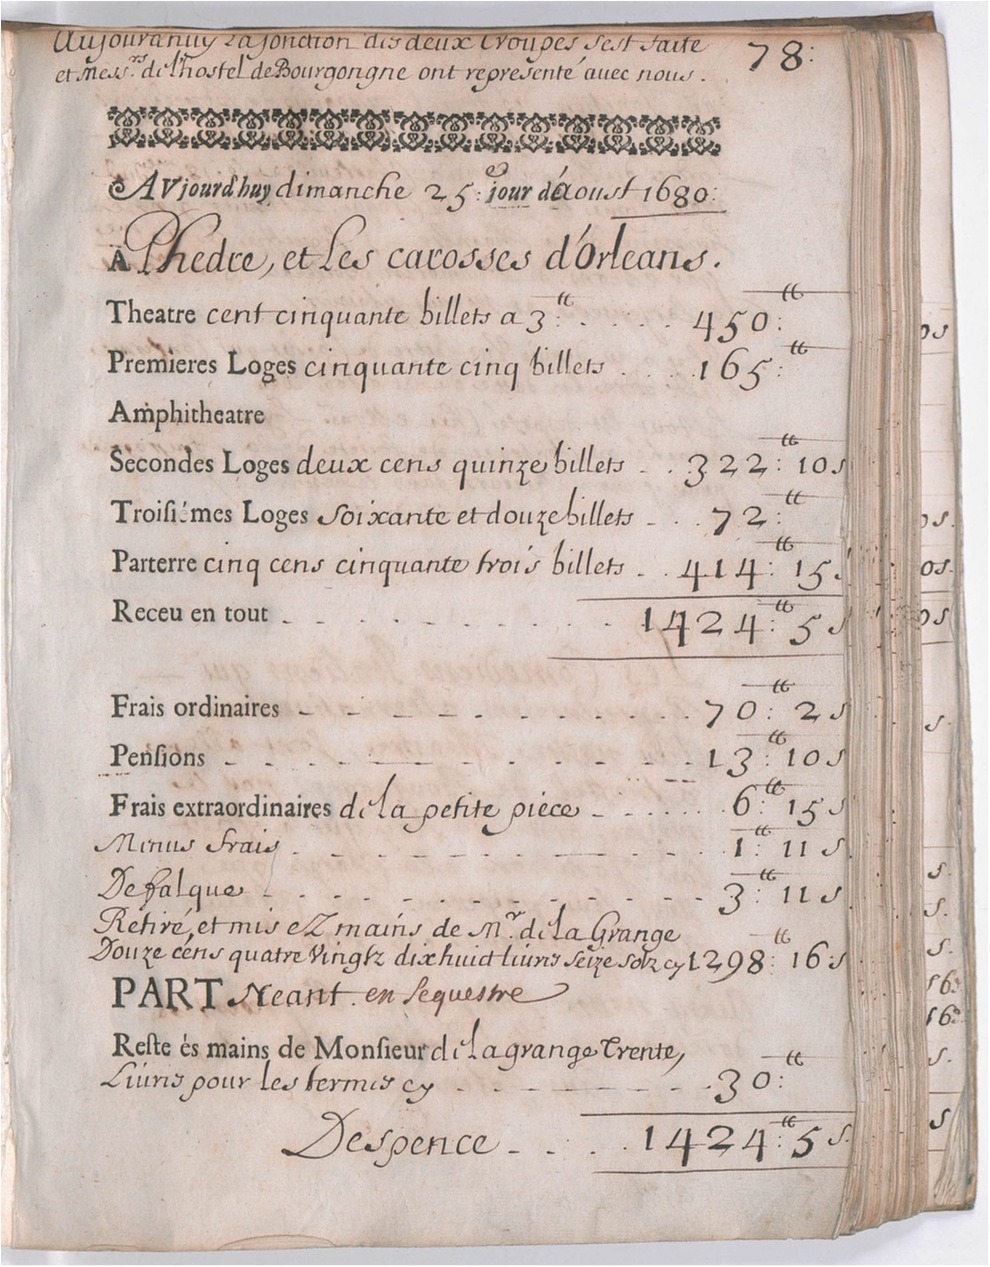 Aujourd'huy La Jonction des deux troupes s'est faite
et Mess.rs de l'hostel de Bourgongne ont representé avec nous.
78:
AVjourd'huy dimanche 25.e jour d'aoust 1680:
A Phedre, et Les carosses d'Orleans.
Theatre cent cinquante billets a 3:tt . . . . 450:tt
Premieres Loges cinquante cinq billets . . . 165:tt
Amphitheatre
Secondes Loges deux cens quinze billets . . 322:tt 10s
Troisiémes Loges soixante et douze billets . . 72:tt
Parterre cinq cens cinquante trois billets . . 414:tt 15s
Receu en tout . . . . . . . . 1424:tt 5s
Frais ordinaires . . . . . . . . 70:tt 2s
Pensions . . . . . . . . 13:tt 10s
Frais extraordinaires de la petite piéce . . . . . 6:tt 15s
Menus frais . . . . . . . . 1:tt 11s
Defalque . . . . . . . . 3:tt 11s
Retiré, et mis eZ mains de M.r de la Grange
Douze cens quatre Vingtz dix huict Liures seize solz cy 1298:tt 16s
PART Neant. en sequestre
Reste és mains de Monsieur de la grange Trente,
Liures pour les termes cy . . . . 30:tt
Despence . . . . 1424:tt 5s.